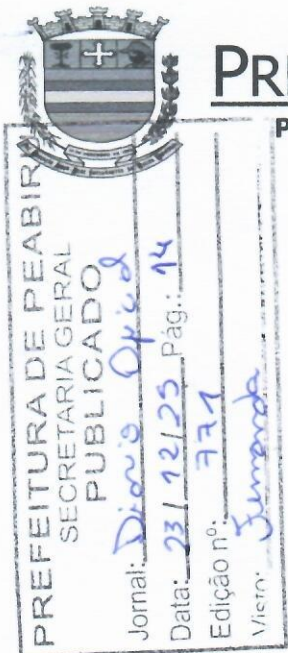 PRE
P
PREFEITURA DE PEABIRU
SECRETARIA GERAL
PUBLICADO
Jornal: Diario Oficial
Data: 23/12/25 Pág.: 14
Edição nº: 771
Visto: Fernanda